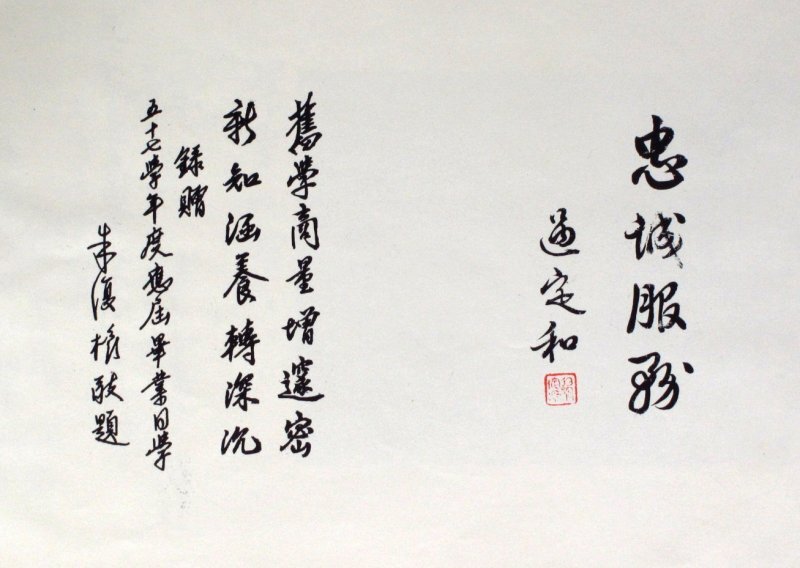 忠誠服務
過定和
舊學商量增邃密
新知涵養轉深沉
錄贈
五十七學年度應屆畢業同學
朱復 敬題